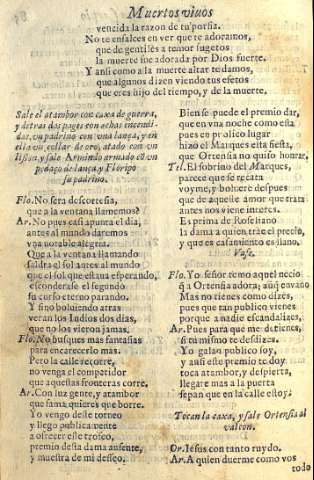 Muertos viuos
vencida la razon de tu porfia.
No te ensalces en ver que te adoramos,
que de gentiles a temor sugetos
la muerte fue adorada por Dios fuerte.
Y ansi como a la muerte altar te damos,
que algunos dizen viendo tus efetos
que eres hijo del tiempo, y de la muerte.
Sale el atambor con caxa de guerra,
y detras dos pages con achas encendi-
das, vn padrino con vna lança, y en
ella vn collar de oro, atado con vn
liston, y sale Armindo armado cõ vn
pedaço de lança, y Floripo
su padrino.
Flo. No sera descortesia,
que a la ventana llamemos?
Ar. No pues casi apunta el dia,
antes al mundo daremos
vna notable alegria.
Que a la ventana llamando
saldra el sol antes al mundo
que el sol que estaua esperando,
esconderase el segundo
su curso eterno parando.
Y sino boluiendo atras
veran los Indios dos dias,
que no los vieron jamas.
Flo. No busques mas fantasias
para encarecerlo mas.
Pero la calle recorre,
no venga el competidor
que aquestas fronteras corre.
Ar. Con luz gente, y atambor
que fama quieres que borre.
Yo vengo deste torneo
y llego publicamente
a ofrecer este trofeo,
premio desta dama ausente,
y muestra de mi desseo.
Bien se puede el premio dar,
que en vna noche como esta
pues en publico lugar
hizo el Marques esta fiesta,
que Ortensia no quiso honrar.
Tel. El sobrino del Marques,
parece que se trata
voyme, y boluere despues
que de aquelle amor que trata
antes nos viene interes.
Es prima de Roseliano
la dama a quien trae el precio,
y que es casamiento es llano.
Vase.
Flo. Yo señor temo aquel necio
q̃ a Ortensia adora; aũq̃ en vano
Mas no tienes como dizes,
pues que tan publico vienes
porque a nadie escandalizes,
Ar. Pues para que me detienes,
si tu mismo te desdizes.
Yo galan publico soy,
y ansi este premio te doy
toca atambor, y despierta,
llegare mas a la puerta
sepan que en la calle estoy.
Tocan la caxa, y sale Ortensia al
valcon.
Or. Iesus con tanto ruydo.
Ar. A quien duerme como vos
todo